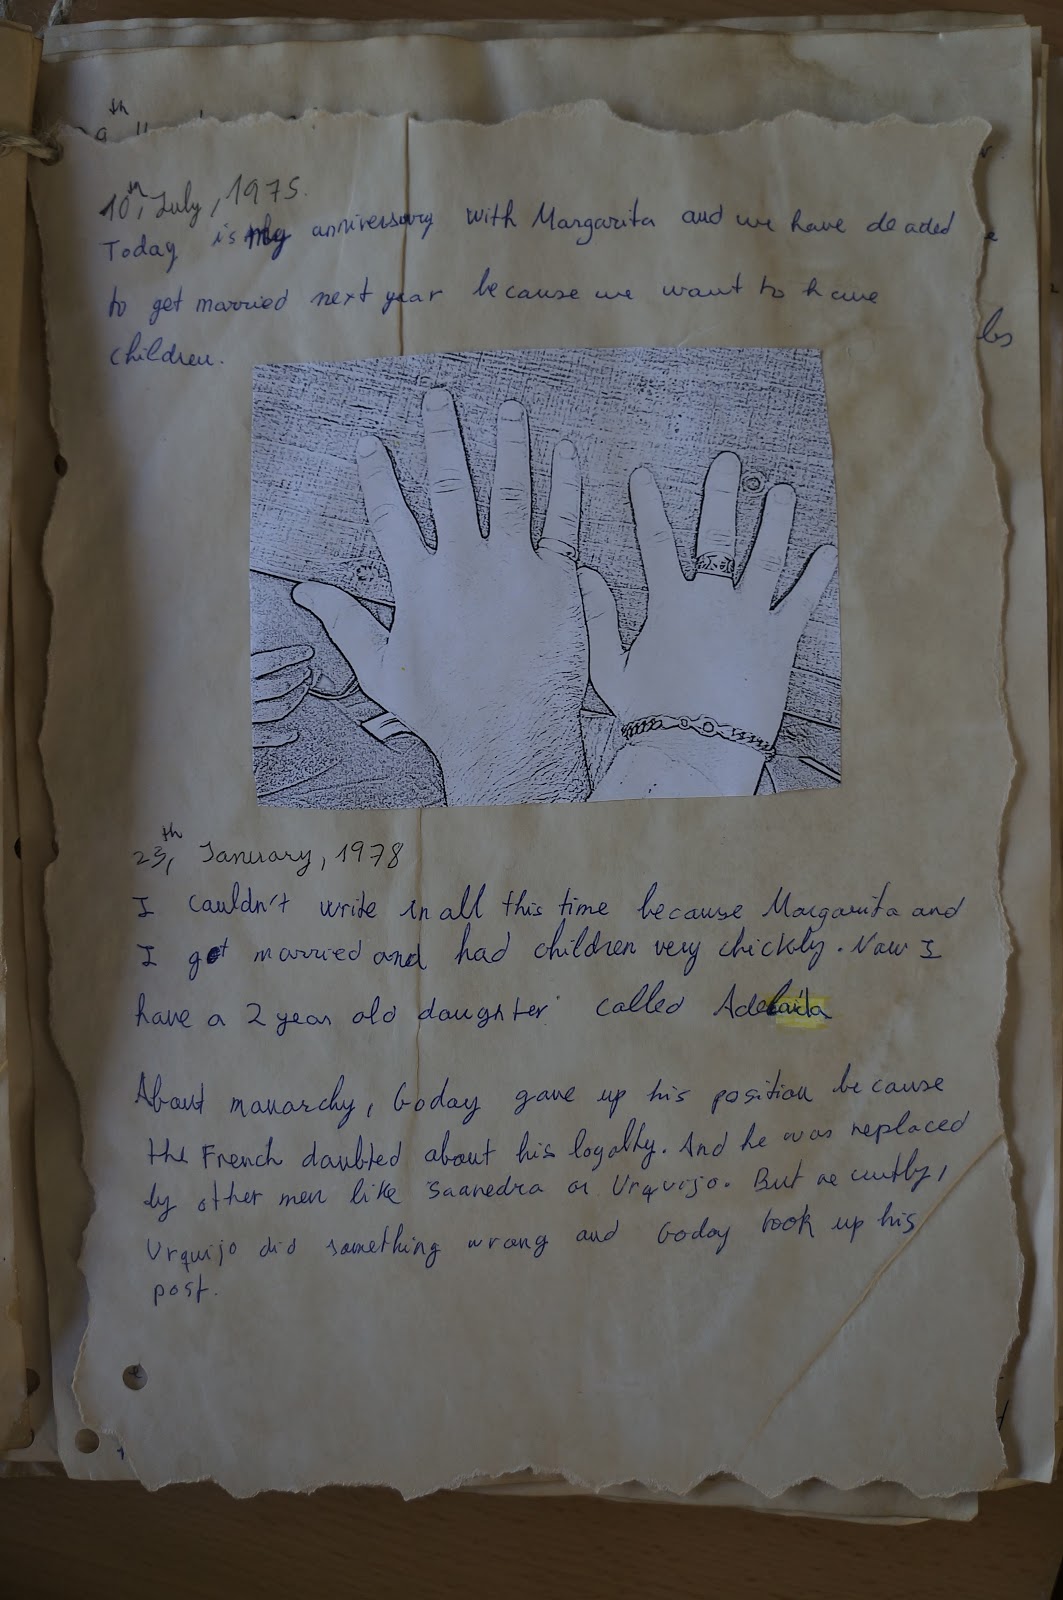 th
10th, July, 1975.
Today is my anniversary with Margarita and we have decided
to get married next year because we want to have
children.
23th, January, 1978
I couldn't write in all this time because Margarita and
I got married and had children very chickly. Now I
have a 2 year old daughter called Adelaida
About monarchy, Goday gave up his position because
the French doubted about his loyalty. And he was replaced
by other men like Saavedra or Urquijo. But recently,
Urquijo did something wrong and Goday took up his
post.